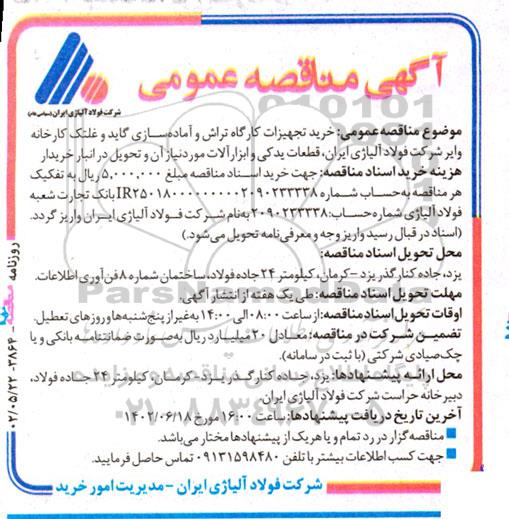 آگهی مناقصه عمومی
شرکت فولاد آلیاژی ایران (سهامی عام)
موضوع مناقصه عمومی: خرید تجهیزات کارگاه تراش و آماده‌سازی گاید و غلتک کارخانه
وایر شرکت فولاد آلیاژی ایران، قطعات یدکی و ابزارآلات مورد نیاز آن و تحویل در انبار خریدار
هزینه خرید اسناد مناقصه: جهت خرید اسناد مناقصه مبلغ ۵,۰۰۰,۰۰۰ ریال به تفکیک
هر مناقصه به حساب شماره IR۲۵۰۱۸۰۰۰۰۰۰۰۰۰۰۲۰۹۰۲۳۳۳۳۸ بانک تجارت شعبه
فولاد آلیاژی شماره حساب: ۲۰۹۰۲۳۳۳۳۸ به نام شرکت فولاد آلیاژی ایران واریز گردد.
(اسناد در قبال رسید واریز وجه و معرفی‌نامه تحویل می‌شود.)
محل تحویل اسناد مناقصه:
یزد، جاده کنارگذر یزد - کرمان، کیلومتر ۲۴ جاده فولاد، ساختمان شماره ۸ فن‌آوری اطلاعات.
مهلت تحویل اسناد مناقصه: طی یک هفته از انتشار آگهی.
اوقات تحویل اسناد مناقصه: از ساعت ۰۸:۰۰ الی ۱۴:۰۰ به غیر از پنج‌شنبه‌ها و روزهای تعطیل.
تضمین شرکت در مناقصه: معادل ۲۰ میلیارد ریال به صورت ضمانتنامه بانکی و یا
چک صیادی شرکتی (با ثبت در سامانه).
محل ارائه پیشنهادها: یزد، جاده کنارگذر یزد - کرمان، کیلومتر ۲۴ جاده فولاد،
دبیرخانه حراست شرکت فولاد آلیاژی ایران.
آخرین تاریخ دریافت پیشنهادها: ساعت ۱۶:۰۰ مورخ ۱۴۰۲/۰۶/۱۸
مناقصه‌گزار در رد تمام و یا هر یک از پیشنهادها مختار می‌باشد.
جهت کسب اطلاعات بیشتر با تلفن ۰۹۱۳۱۵۹۸۴۸۰ تماس حاصل فرمایید.
شرکت فولاد آلیاژی ایران - مدیریت امور خرید
روزنامه
۳۸۶۴ - ۰۲/۰۵/۲۲
ParsNamadData